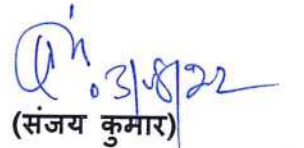 03/08/22
(संजय कुमार)